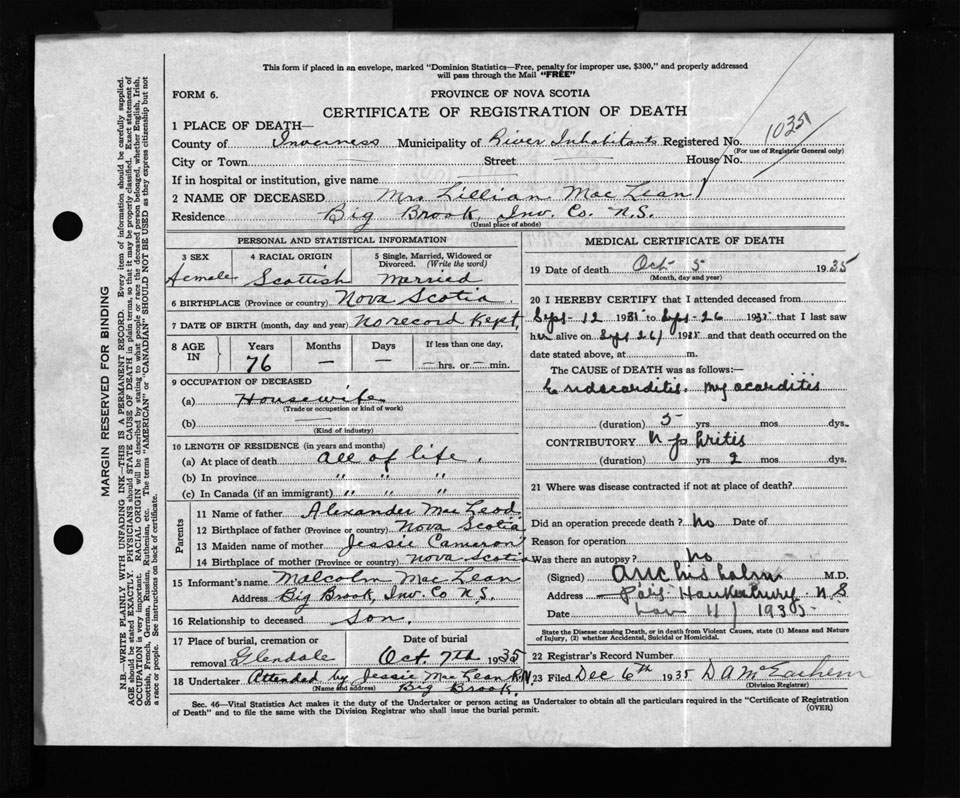 This form if placed in an envelope, marked "Dominion Statistics—Free, penalty for improper use, $300," and properly addressed
will pass through the Mail "FREE"
FORM 6.
PROVINCE OF NOVA SCOTIA
CERTIFICATE OF REGISTRATION OF DEATH
1 PLACE OF DEATH—
County of Inverness Municipality of River Inhabitants Registered No. 1035
(For use of Registrar General only)
City or Town Street House No.
If in hospital or institution, give name
2 NAME OF DECEASED Mrs Lillian Mac Lean
Residence Big Brook, Inv. Co. N.S.
(Usual place of abode)
PERSONAL AND STATISTICAL INFORMATION
3 SEX 4 RACIAL ORIGIN 5 Single, Married, Widowed or Divorced. (Write the word)
Female Scottish Married
6 BIRTHPLACE (Province or country) Nova Scotia.
7 DATE OF BIRTH (month, day and year) No record Kept,
8 AGE IN Years Months Days If less than one day,
76 — — — hrs. or — min.
9 OCCUPATION OF DECEASED
(a) Housewife
(Trade or occupation or kind of work)
(b)
(Kind of industry)
10 LENGTH OF RESIDENCE (in years and months)
(a) At place of death all of life.
(b) In province " " "
(c) In Canada (if an immigrant) " " "
Parents
11 Name of father Alexander Mac Leod.
12 Birthplace of father (Province or country) Nova Scotia
13 Maiden name of mother Jessie Cameron
14 Birthplace of mother (Province or country) Nova Scotia
15 Informant's name Malcolm Mac Lean
Address Big Brook, Inv. Co N.S.
16 Relationship to deceased Son.
17 Place of burial, cremation or removal Glendale Date of burial Oct. 7th 1935
18 Undertaker Attended by Jessie Mac Lean R.N
(Name and address) Big Brook.
MEDICAL CERTIFICATE OF DEATH
19 Date of death Oct 5 1935
(Month, day and year)
20 I HEREBY CERTIFY that I attended deceased from
Sept-12 1935 to Sept-26 1935 that I last saw
her alive on Sept 26 1935 and that death occurred on the
date stated above, at m.
The CAUSE of DEATH was as follows:—
Endocarditis. Myocarditis
(duration) 5 yrs mos dys.
CONTRIBUTORY Nephritis
(duration) yrs 2 mos. dys.
21 Where was disease contracted if not at place of death?
Did an operation precede death? No Date of
Reason for operation
Was there an autopsy? no
(Signed) M.D.
Address Port Hawkesbury N S
Date Nov 11 1935
State the Disease causing Death, or in death from Violent Causes, state (1) Means and Nature
of Injury, (2) whether Accidental, Suicidal or Homicidal.
22 Registrar's Record Number
23 Filed Dec 6th 1935 D A McEachern
(Division Registrar)
Sec. 46—Vital Statistics Act makes it the duty of the Undertaker or person acting as Undertaker to obtain all the particulars required in the "Certificate of Registration
of Death" and to file the same with the Division Registrar who shall issue the burial permit.
(OVER)
MARGIN RESERVED FOR BINDING
N.B.—WRITE PLAINLY WITH UNFADING INK—THIS IS A PERMANENT RECORD. Every item of information should be carefully supplied.
AGE should be stated EXACTLY. PHYSICIANS should STATE CAUSE OF DEATH in plain terms, so that it may be properly classified. Exact statement of
OCCUPATION is very important. RACIAL ORIGIN will be described by stating to what people or race the deceased person belonged, whether English, Irish,
Scottish, French, German, Russian, Ruthenian, etc. The terms "AMERICAN" or "CANADIAN" SHOULD NOT BE USED as they express citizenship but not
a race or people. See instructions on back of certificate.